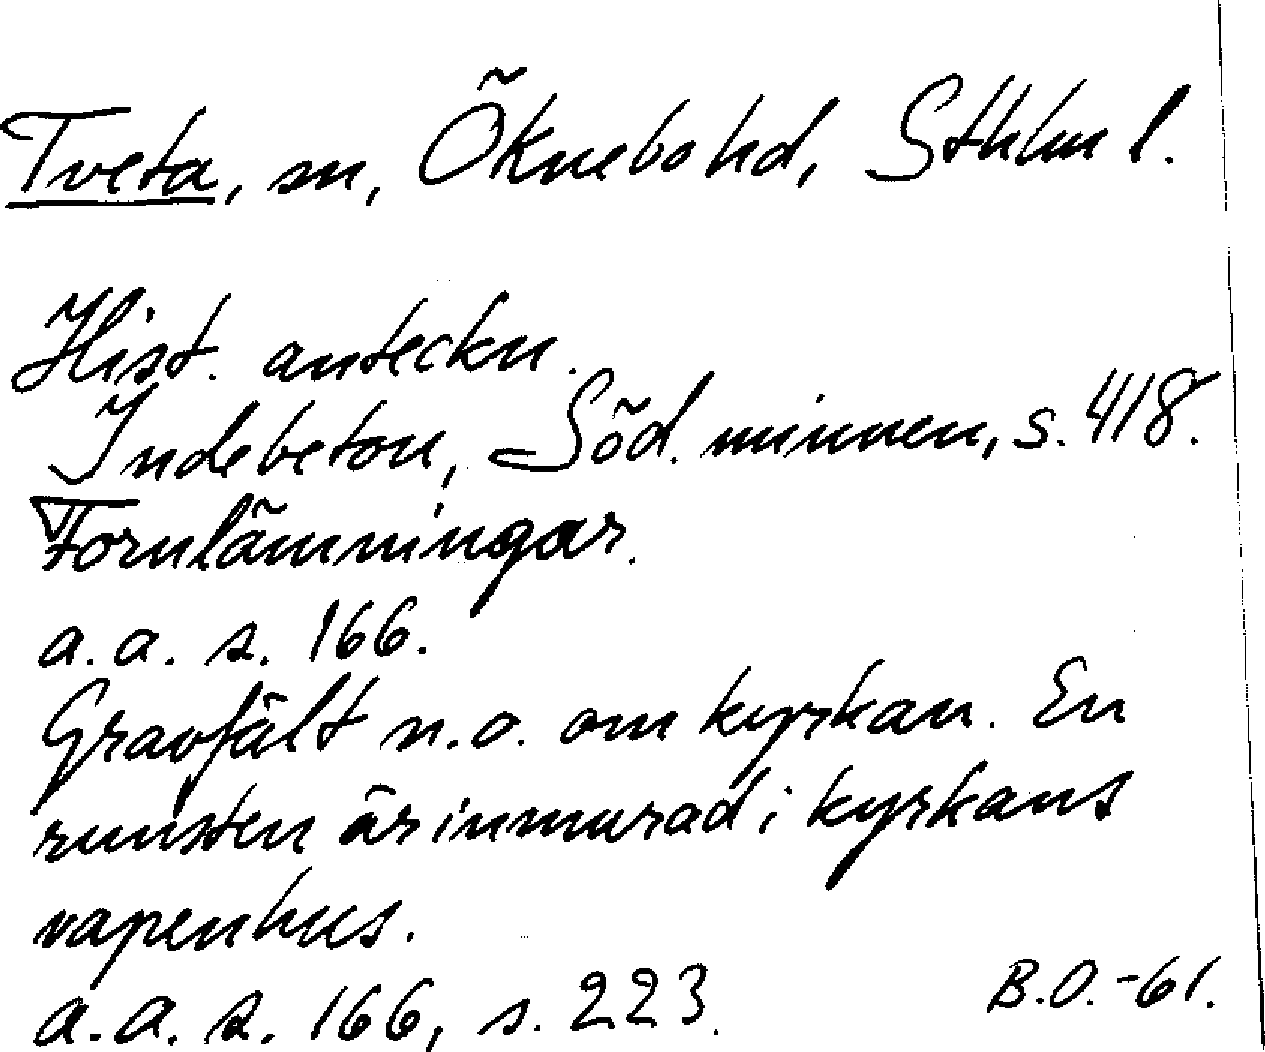 Tveta, sn, Öknebo hd, Sthlm l.
Hist. anteckn.
Indebetou, Söd. minnen, s. 418.
Fornlämningar.
a.a. s. 166.
Gravfält n.o. om kyrkan. En
runsten är inmurad i kyrkans
vapenhus.
a.a. s. 166, s. 223.
B.O.-61.